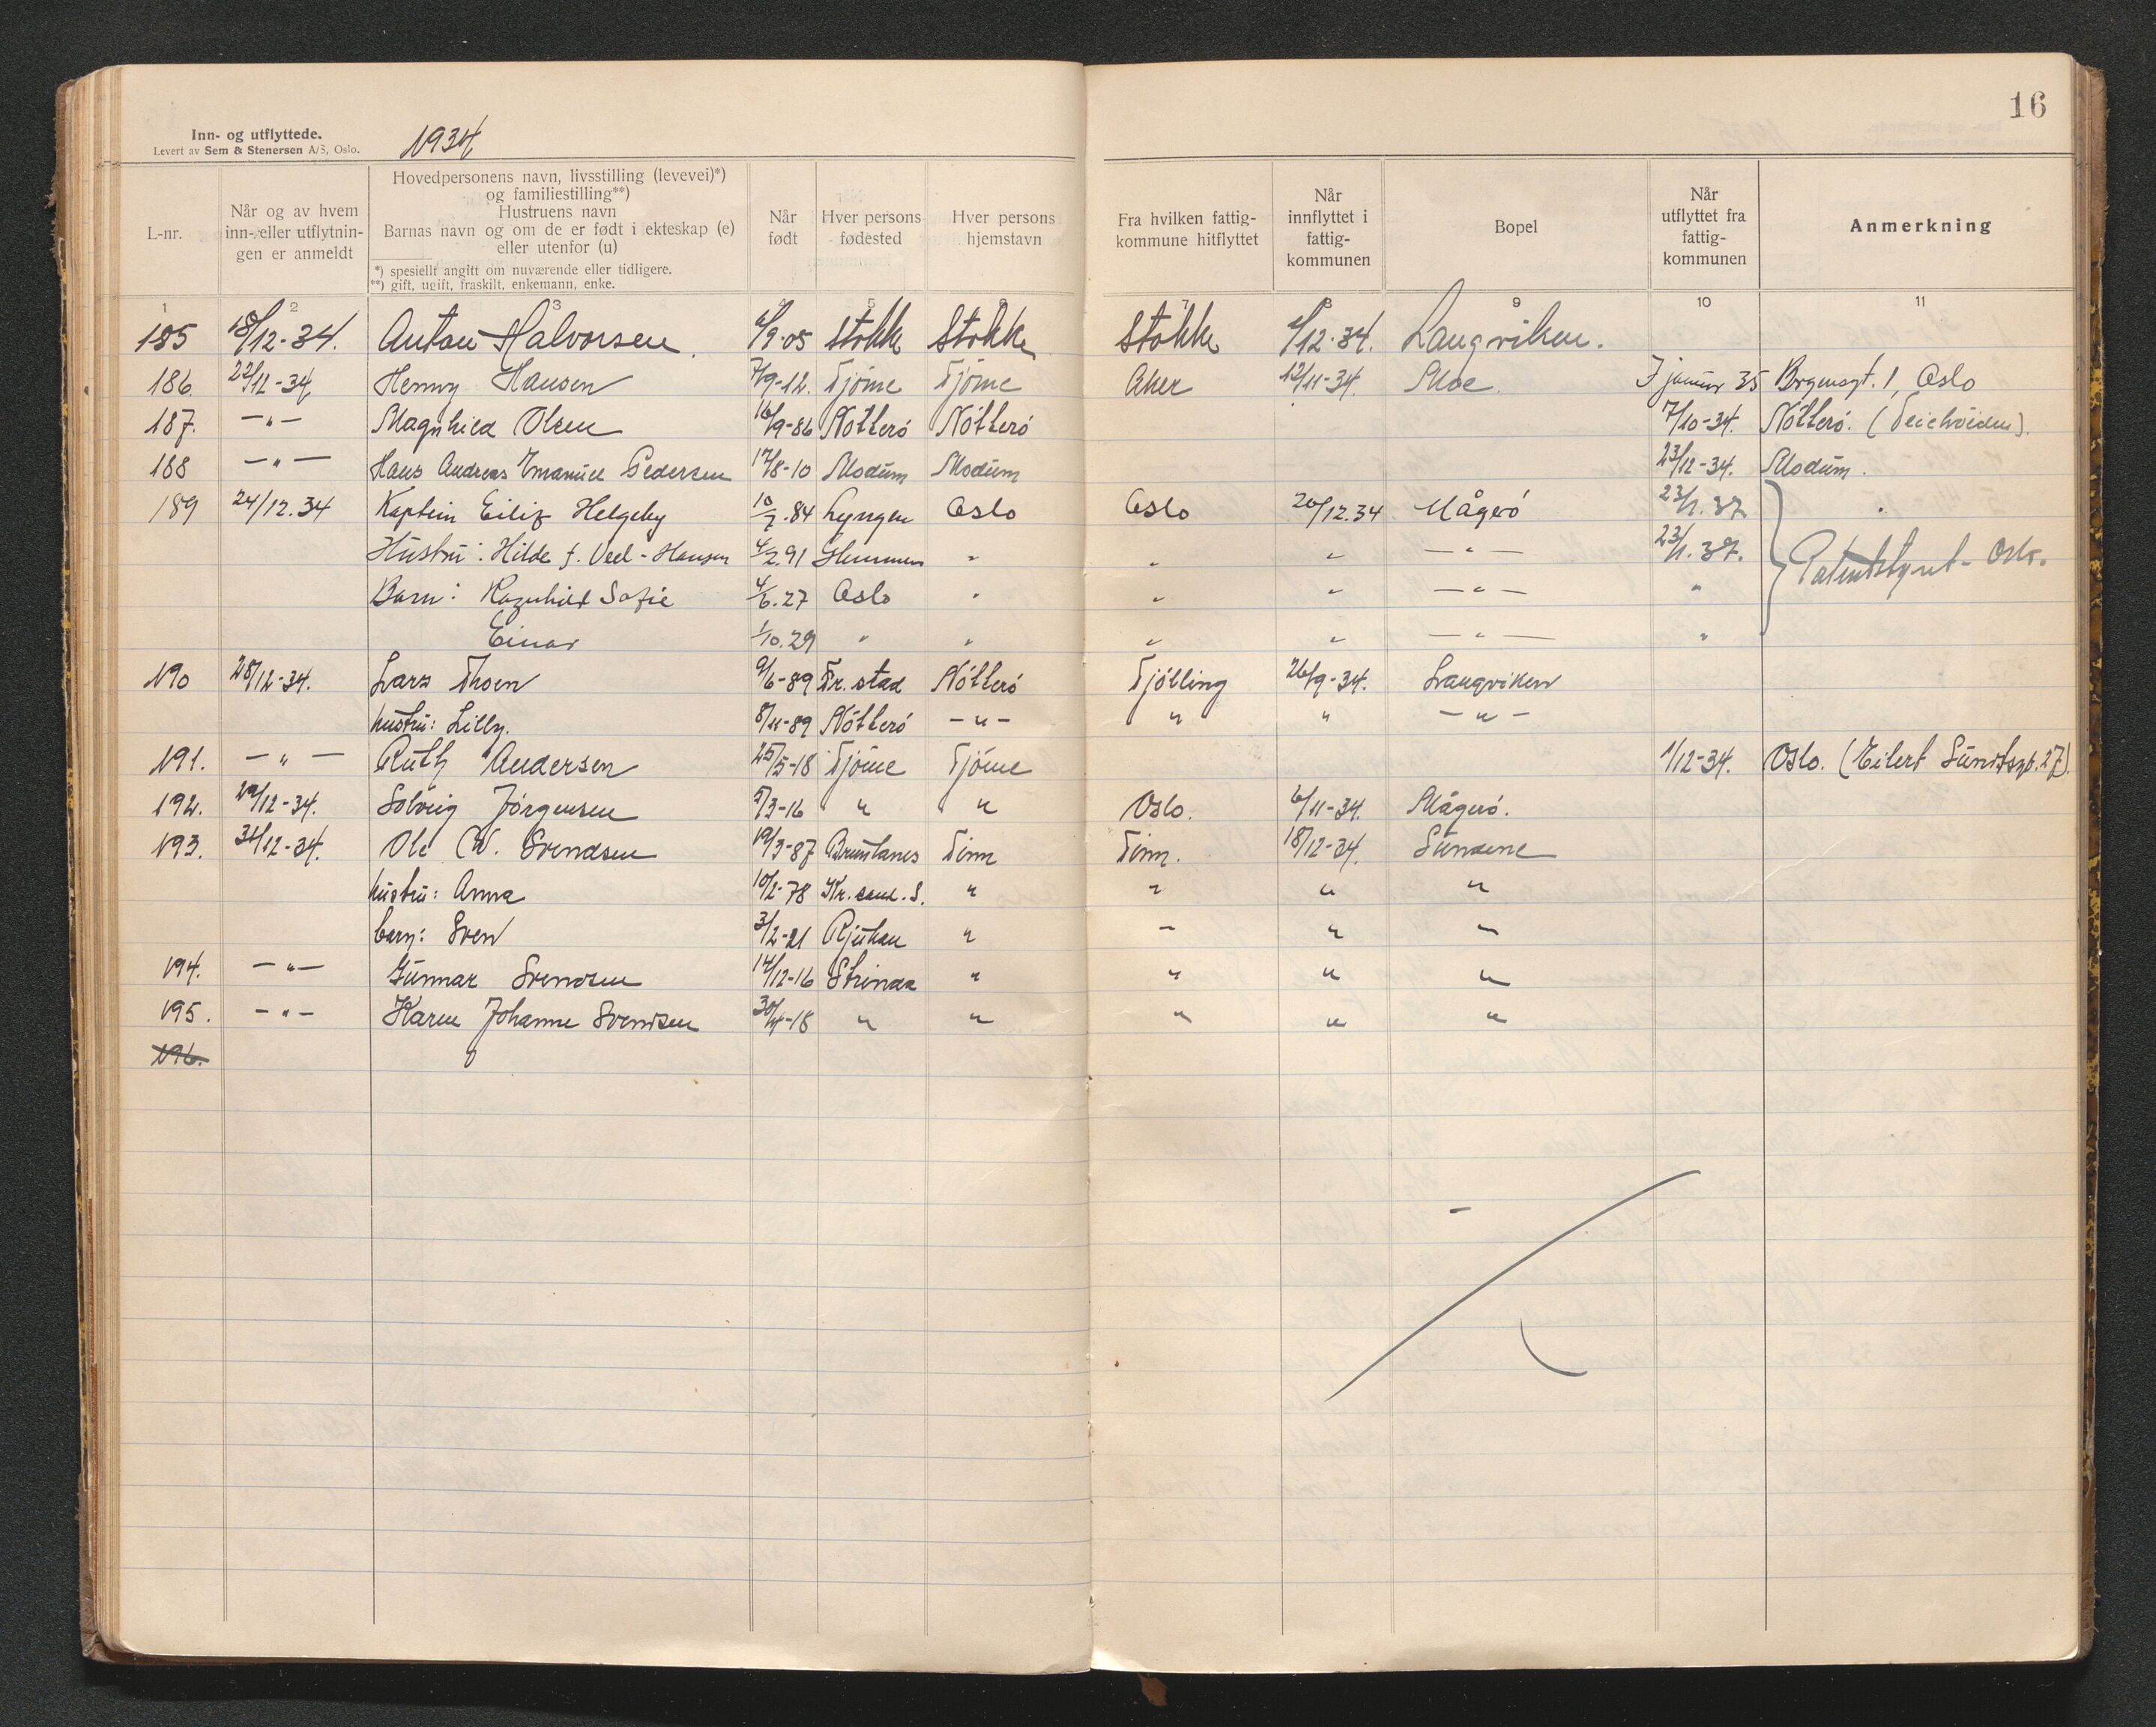 16
Inn- og utflyttede.
Levert av Sem & Stenersen A/S, Oslo.
1934
L-nr.
Når og av hvem inn- eller utflytnin- gen er anmeldt
Hovedpersonens navn, livsstilling (levevei)*)
og familiestilling**)
Hustruens navn
Barnas navn og om de er født i ekteskap (e)
eller utenfor (u)
*) spesiellt angitt om nuværende eller tidligere.
**) gift, ugift, fraskilt, enkemann, enke.
Når født
Hver persons fødested
Hver persons hjemstavn
Fra hvilken fattig- kommune hitflyttet
Når innflyttet i fattig- kommunen
Bopel
Når utflyttet fra fattig- kommunen
Anmerkning
1 2 3 5 7 8 9 10 11
185 18/12-34. Anton Halvorsen. /9-05 Stokke Stokke Stokke /12-34. Langviken.
186. 22/12-34 Henny Hansen 7/9-12. Tjöme Tjöme Aker 12/11-34. Moe. 3 januar 35 Brgensgt. 1, Oslo
187. -"- Magnhild Olsen 16/9-86 Nötterö Nötterö 7/10-34. Nötterö. (Teiehöiden).
188 -"- Hans Andreas Emanuel Pedersen 17/8-10 Modum Modum 23/12-34. Modum.
189 24/12.34 Kaptein Eilif Helgeby 10/7.84 Lyngen Oslo Oslo 20/12.34 Mågerö 23/1.37
Hustru: Hilde f. Veel-Hansen 4/2.91 Glemmen " " " -"- 23/1.37. Patentstyret - Oslo.
Barn: Ragnhild Sofie 4/6.27 Oslo " " " -"- "
Einar 1/10.29 " " " " -"- "
190 28/12-34. Lars Thoen 9/6-89 Fr.stad Nötterö Tjölling 26/9-34. Langviken
hustru: Lilly. 8/11-89 Nötterö -"- " " -"-
191. -"- Ruth Andersen 25/5-18 Tjöme Tjöme 1/12-34. Oslo. (Eilert Sundtsgt. 27).
192. 29/12-34. Solveig Jörgensen 5/3-16 " " Oslo. 6/11-34. Mågerö.
193. 31/12-34. Ole W. Svendsen 19/3-87 Brunlanes Tinn Tinn. 18/12-34. Sundene
hustru: Anna 10/2-78 Kr.sand.S. " " " "
barn: Sven 3/2-21 Rjukan " " " "
194. -"- Gunnar Svendsen 14/12-16 Strinda " " " "
195. -"- Karen Johanne Svendsen 30/4-18 " " " " "
196.